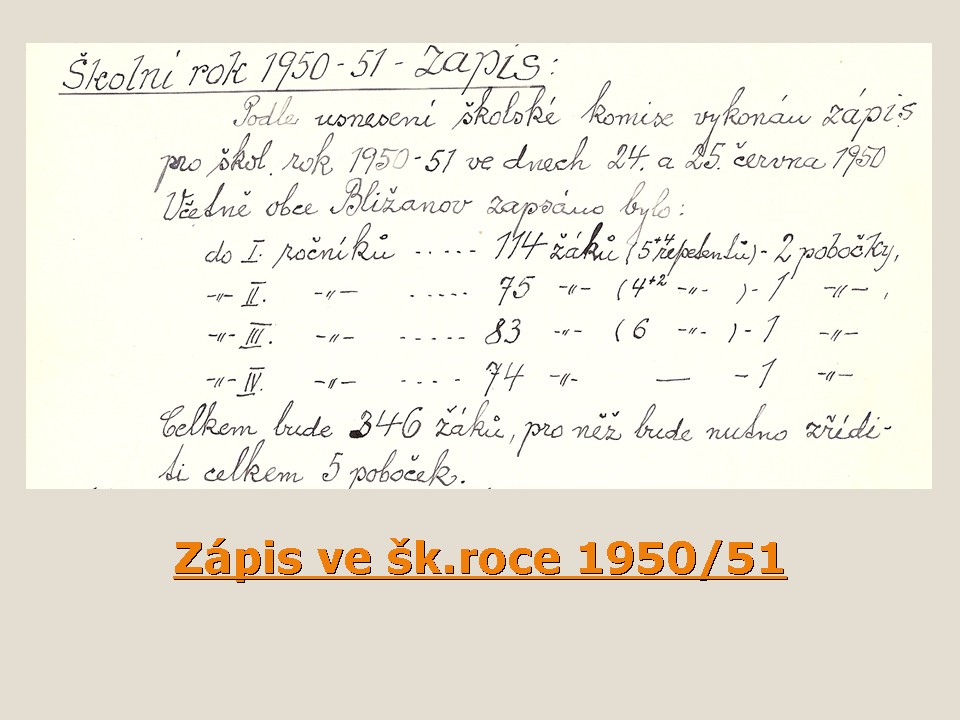 Školní rok 1950-51 - Zápis:
Podle usnesení školské komise vykonán zápis
pro škol. rok 1950-51 ve dnech 24. a 25. června 1950
Včetně obce Bližanov zapsáno bylo:
do I. ročníků ..... 114 žáků (5+4 repetentů) - 2 pobočky,
-"- II. -"- ..... 75 -"- (4+2 -"- ) - 1 -"- ,
-"- III. -"- ..... 83 -"- (6 -"- ) - 1 -"-
-"- IV. -"- .... 74 -"- — - 1 -"-
Celkem bude 346 žáků, pro něž bude nutno zřídi-
ti celkem 5 poboček.
Zápis ve šk.roce 1950/51